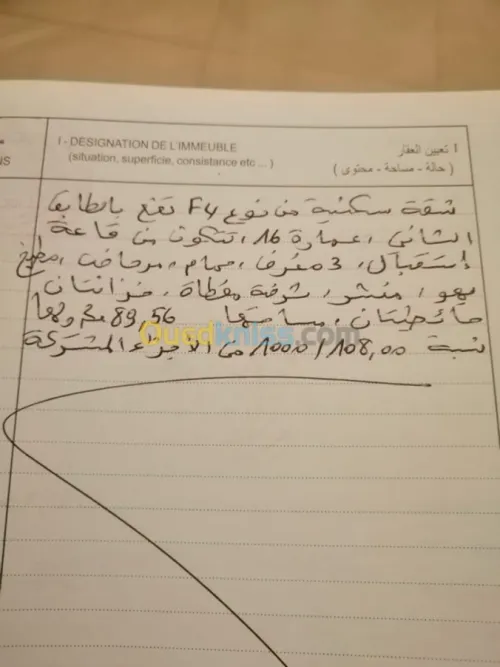 I - DESIGNATION DE L'IMMEUBLE
(situation, superficie, consistance etc ... )
I تعيين العقار
( حالة - مساحة - محتوى )
NS
شقة سكنية من نوع F4 تقع بالطابق
الثاني، عمارة 16، تتكون من قاعة
إستقبال، 3 غرف، حمام، مرحاض، مطبخ
بهو، منشر، شرفة مغطاة، خزانتان
حائطيتان، مساحتها 89,56 م2 ولها
نسبة 108,00/1000 من الأجزاء المشتركة
Ouedkniss.com